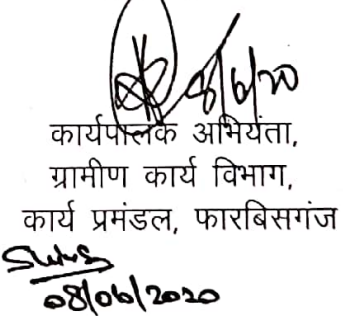 8/6/20
कार्यपालक अभियंता,
ग्रामीण कार्य विभाग,
कार्य प्रमंडल, फारबिसगंज
08/06/2020